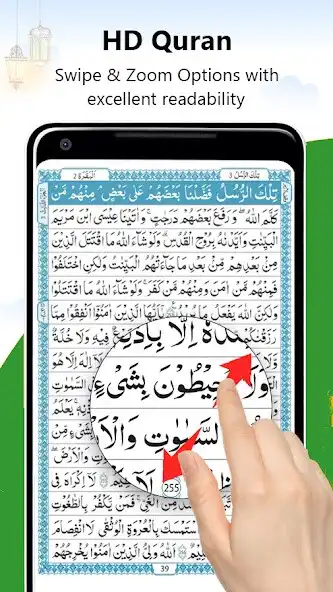 HD Quran
Swipe & Zoom Options with
excellent readability
تِلْكَ الرُّسُل 3 اَلْبَقَرَة 2
تِلْكَ الرُّسُلُ فَضَّلْنَا بَعْضَهُمْ عَلٰى بَعْضٍ مِنْهُمْ مَّنْ
كَلَّمَ اللّٰهُ وَرَفَعَ بَعْضَهُمْ دَرَجٰتٍ وَاٰتَيْنَا عِيْسَى ابْنَ مَرْيَمَ
الْبَيِّنٰتِ وَاَيَّدْنٰهُ بِرُوْحِ الْقُدُسِ وَلَوْ شَآءَ اللّٰهُ مَا اقْتَتَلَ الَّذِيْنَ
مِنْ بَعْدِهِمْ مِّنْ بَعْدِ مَا جَآءَتْهُمُ الْبَيِّنٰتُ وَلٰكِنِ اخْتَلَفُوْا
فَمِنْهُمْ مَّنْ اٰمَنَ وَمِنْهُمْ مَّنْ كَفَرَ وَلَوْ شَآءَ اللّٰهُ مَا اقْتَتَلُوْا
وَلٰكِنَّ اللّٰهَ يَفْعَلُ مَا الَّذِيْنَ اٰمَنُوْٓا اَنْفِقُوْا مِمَّا
وَلَا خُلَّةٌ
اِلَّا بِاِذْنِهٖ
يُحِيْطُوْنَ بِشَيْءٍ
السَّمٰوٰتِ وَالْاَ
255
لَآ اِكْرَاهَ فِى
فَمَنْ يَّكْفُرْ بِالطَّاغُوْتِ
اسْتَمْسَكَ بِالْعُرْوَةِ الْوُثْقٰى لَا انْفِصَامَ
اَللّٰهُ وَلِىُّ الَّذِيْنَ اٰمَنُوْا يُخْرِجُهُمْ
39